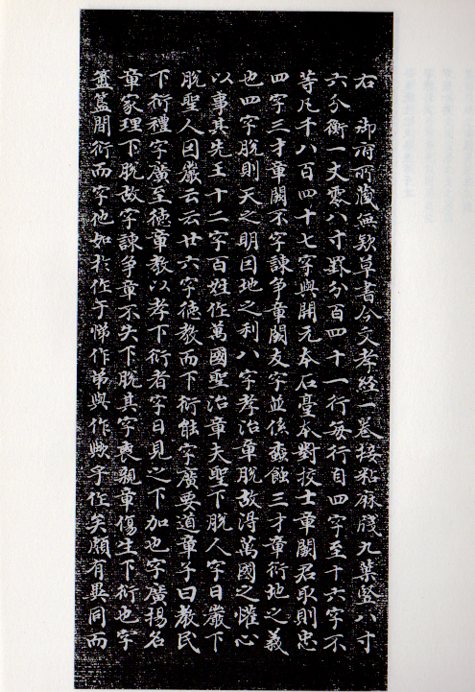 右　御府所藏無款草書今文孝經一卷接粘麻牋九葉竪八寸
六分衡一丈零八寸界分百四十一行每行自四字至十六字不
等凡千八百四十七字與開元本石臺本對挍士章闕君取則忠
四字三才章闕不字諫爭章闕友字並係蠹蝕三才章衍地之義
也四字脫則天之明因地之利八字孝治章脫故得萬國之懽心
以事其先王十二字百姓作萬國聖治章夫聖下脫人字日嚴下
脫聖人因嚴云云廿六字德教而下衍能字廣要道章子曰教民
下衍禮字廣至德章教以孝下衍者字日見之下加也字廣揚名
章家理下脫故字諫爭章不失下脫其字喪親章傷生下衍也字
簠簋間衍而字他如於作于悌作弟與作歟乎作矣頗有異同而